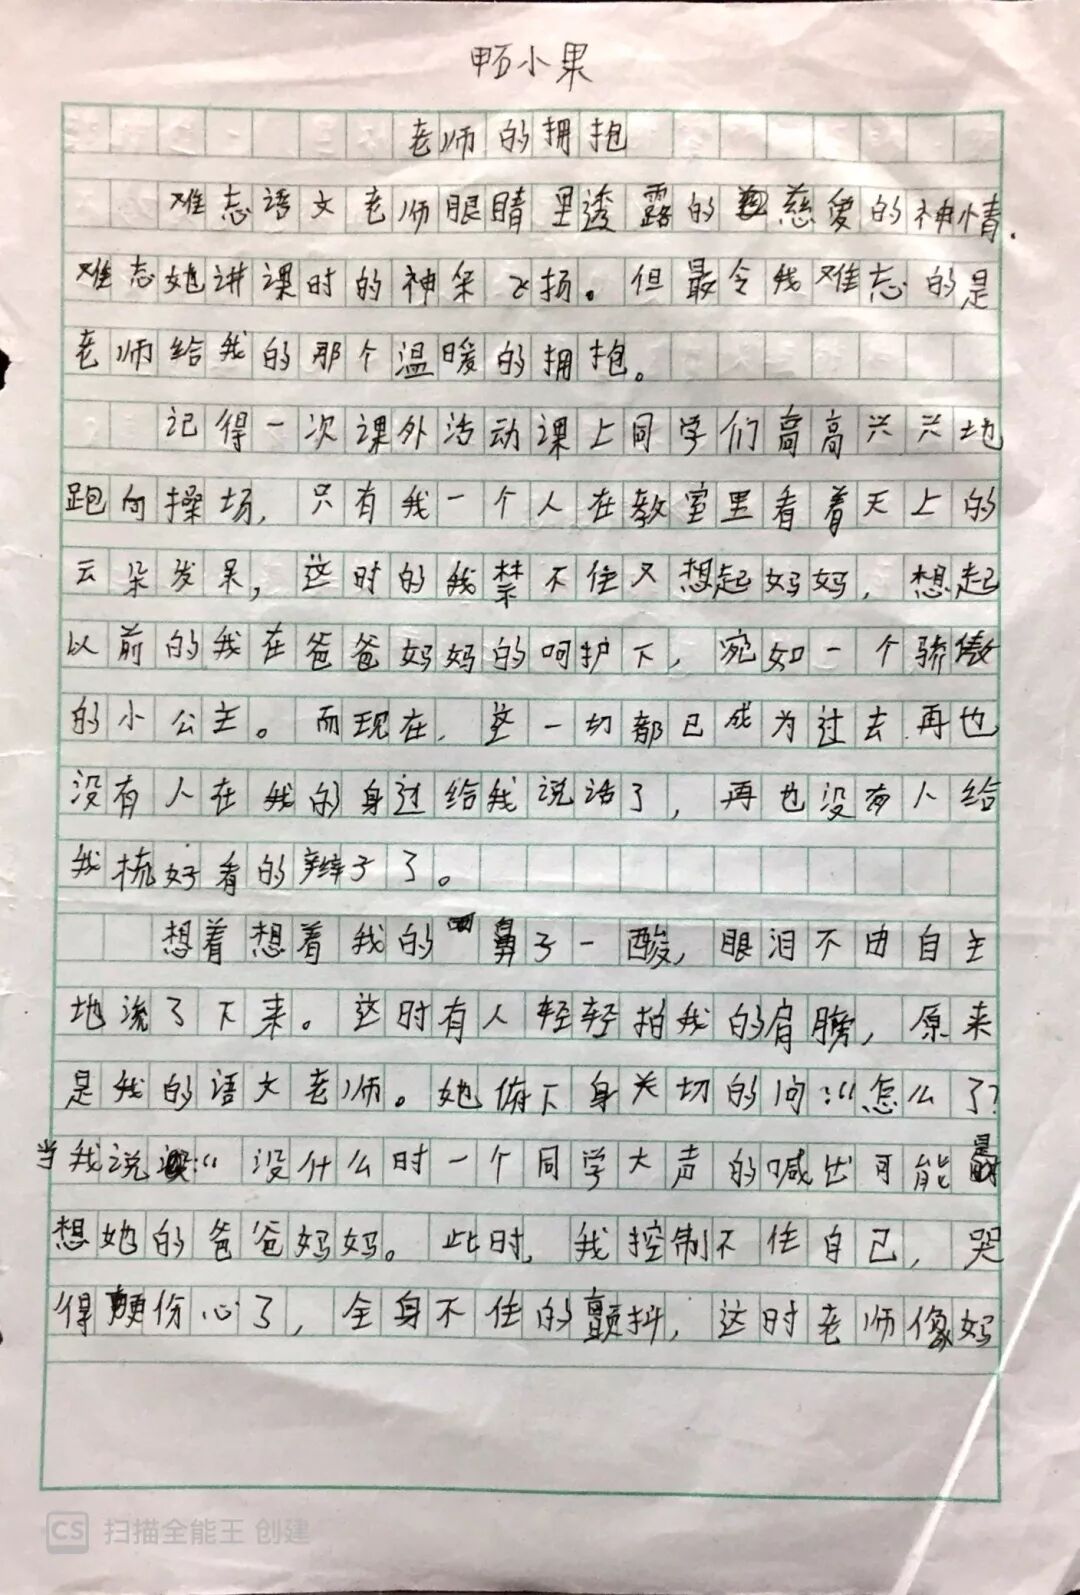 小果
老师的拥抱
难忘语文老师眼睛里透露的慈爱的神情.
难忘她讲课时的神采飞扬。但最令我难忘的是
老师给我的那个温暖的拥抱。
记得一次课外活动课上同学们高高兴兴地
跑向操场,只有我一个人在教室里看着天上的
云朵发呆,这时的我禁不住又想起妈妈,想起
以前的我在爸爸妈妈的呵护下,宛如一个骄傲
的小公主。而现在,这一切都已成为过去.再也
没有人在我的身边给我说话了,再也没有人给
我梳好看的辫子了。
想着想着我的鼻子一酸,眼泪不由自主
地流了下来。这时有人轻轻拍我的肩膀,原来
是我的语文老师。她俯下身关切的问:“怎么了?
当我说:“没什么时一个同学大声的喊出可能是
想她的爸爸妈妈。此时,我控制不住自己,哭
得更伤心了,全身不住的颤抖,这时老师像妈
CS 扫描全能王 创建